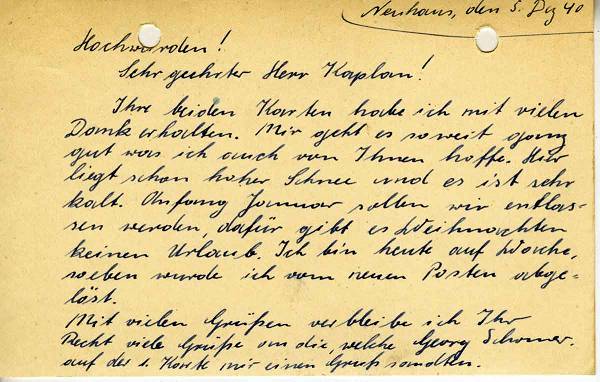 Neuhaus, den 5. Dez 40
Hochwürden!
Sehr geehrter Herr Kaplan!
Ihre beiden Karten habe ich mit vielen
Dank erhalten. Mir geht es soweit ganz
gut was ich auch von Ihnen hoffe. Hier
liegt schon hoher Schnee und es ist sehr
kalt. Anfang Januar sollen wir entlas-
sen werden, dafür gibt es Weihnachten
keinen Urlaub. Ich bin heute auf Wache,
soeben wurde ich vom neuen Posten abge-
löst.
Mit vielen Grüßen verbleibe ich Ihr
Recht viele Grüße an die, welche Georg
auf der Karte mir einen Gruß sandten.